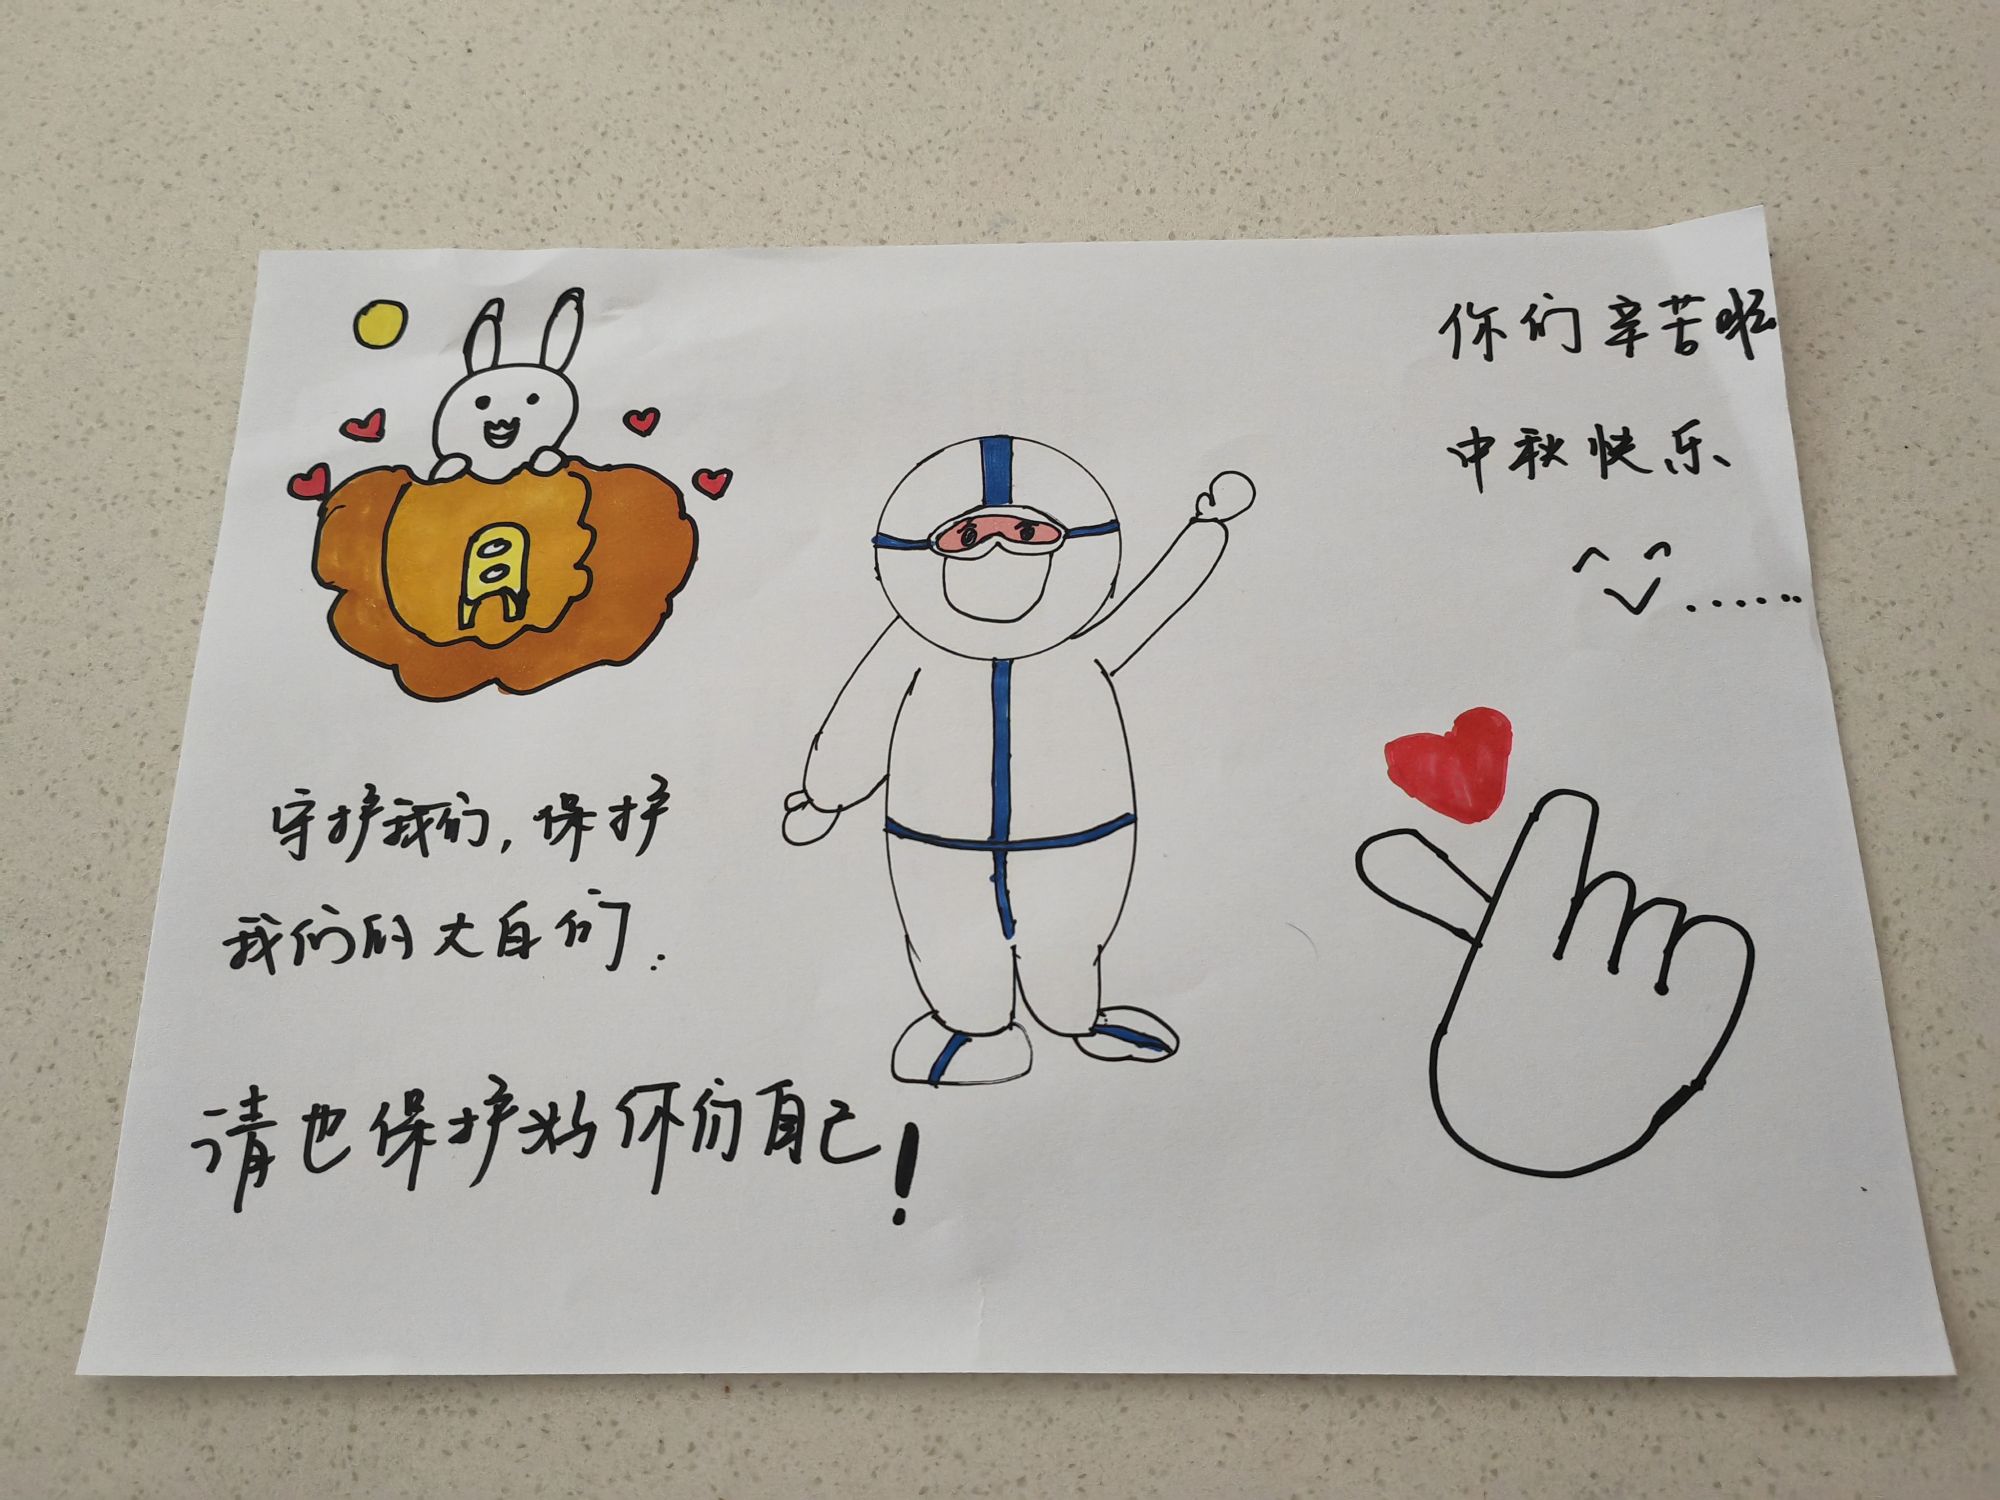 你们辛苦啦
中秋快乐
守护我们,保护
我们的大白们.
请也保护好你们自己!